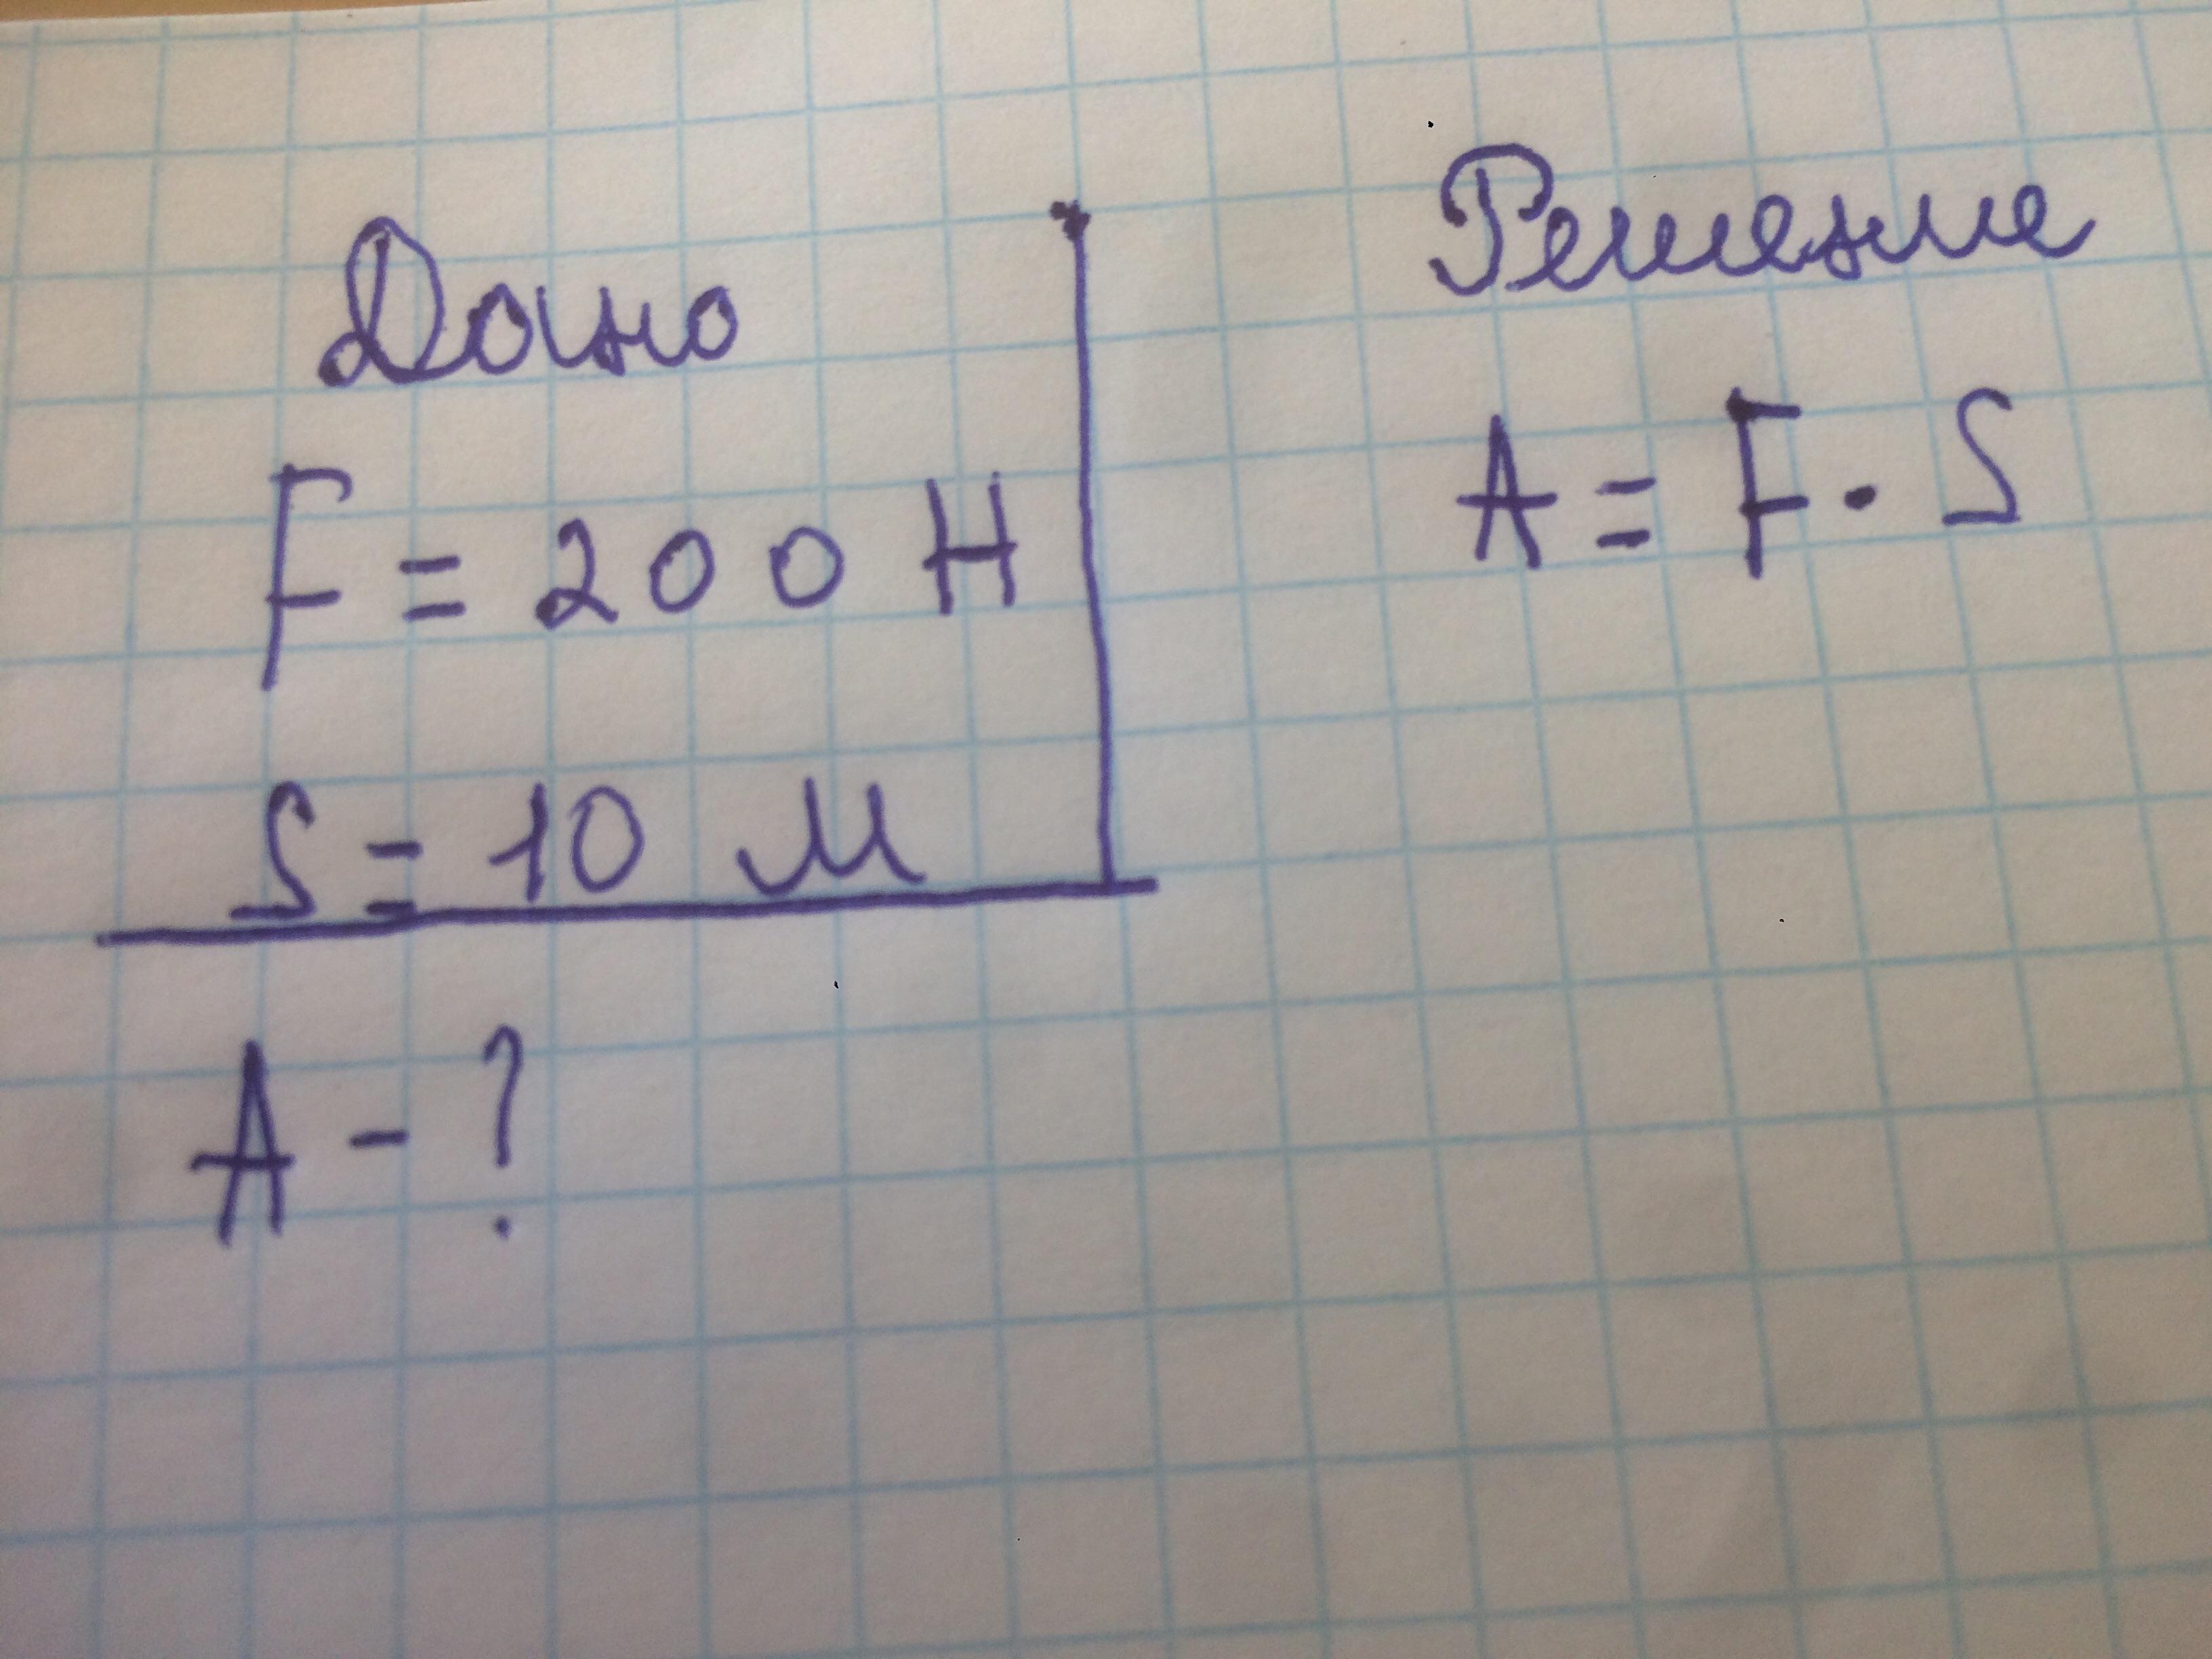 Дано
F = 200 Н
S = 10 м
A - ?
Решение
A = F · S